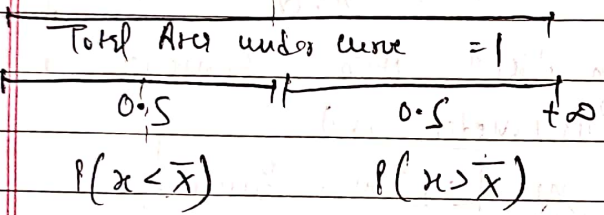 Total Area under curve = 1
0.5 0.5 +∞
P(x < x̄) P(x > x̄)